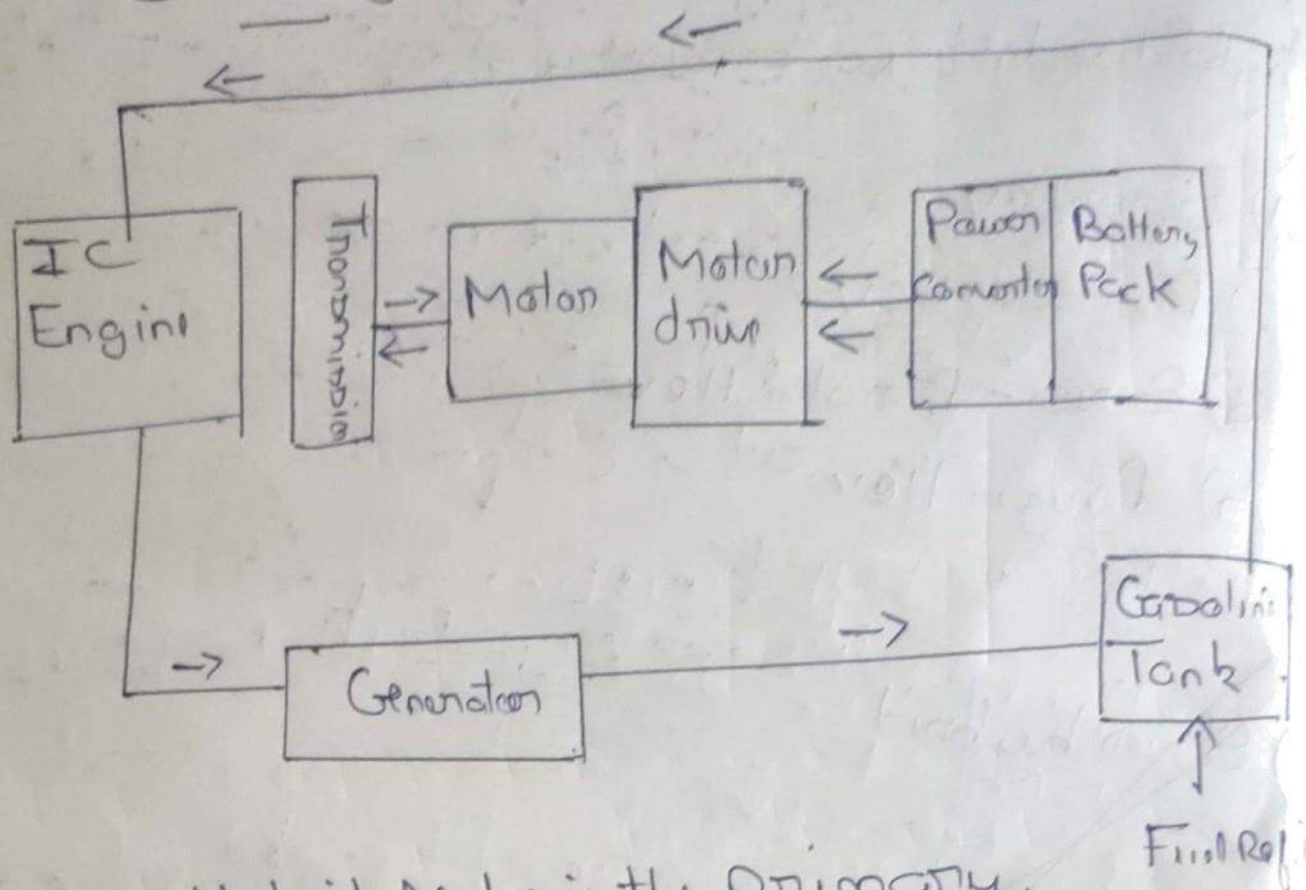 IC
Engine
Transmission
Motor
Motor
drive
Power
Converter
Battery
Pack
Generator
Gasoline
Tank
Fuel
the primary